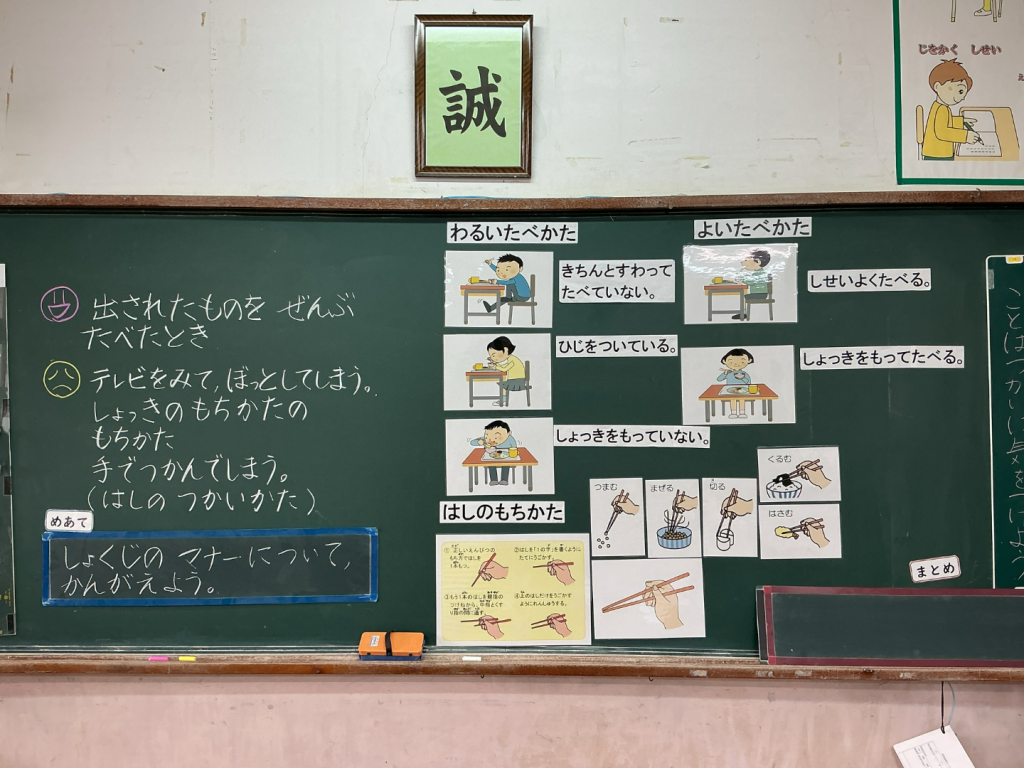 誠
じをかく しせい
出されたものを ぜんぶ
たべたとき
テレビをみて,ぼっとしてしまう。
しょっきのもちかたの
もちかた
手でつかんでしまう。
(はしの つかいかた)
めあて
しょくじの マナーについて,
かんがえよう。
わるいたべかた
きちんとすわって
たべていない。
ひじをついている。
しょっきをもっていない。
よいたべかた
しせいよくたべる。
しょっきをもってたべる。
はしのもちかた
つまむ
まぜる
切る
くるむ
はさむ
まとめ